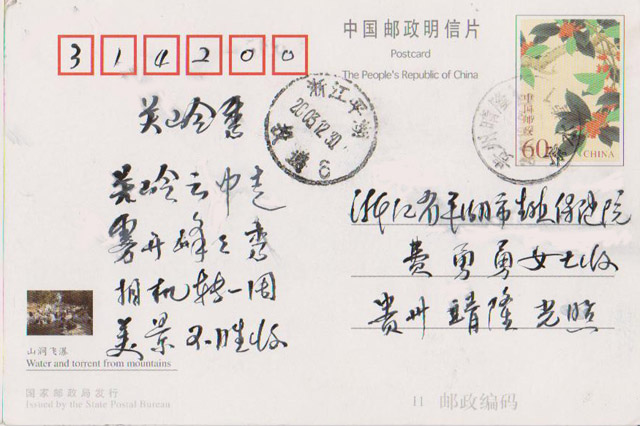 314200
中国邮政明信片
Postcard
The People's Republic of China
浙江平湖
2003.12.30
6
中国邮政
60分
CHINA
关岭秀
关岭云中走
雾开峰之秀
相机转一周
美景不胜收
浙江省平湖市妇保健院
费勇勇女士收
贵州 晴隆 光照
山涧飞瀑
Water and torrent from mountains
国家邮政局发行
Issued by the State Postal Bureau
邮政编码